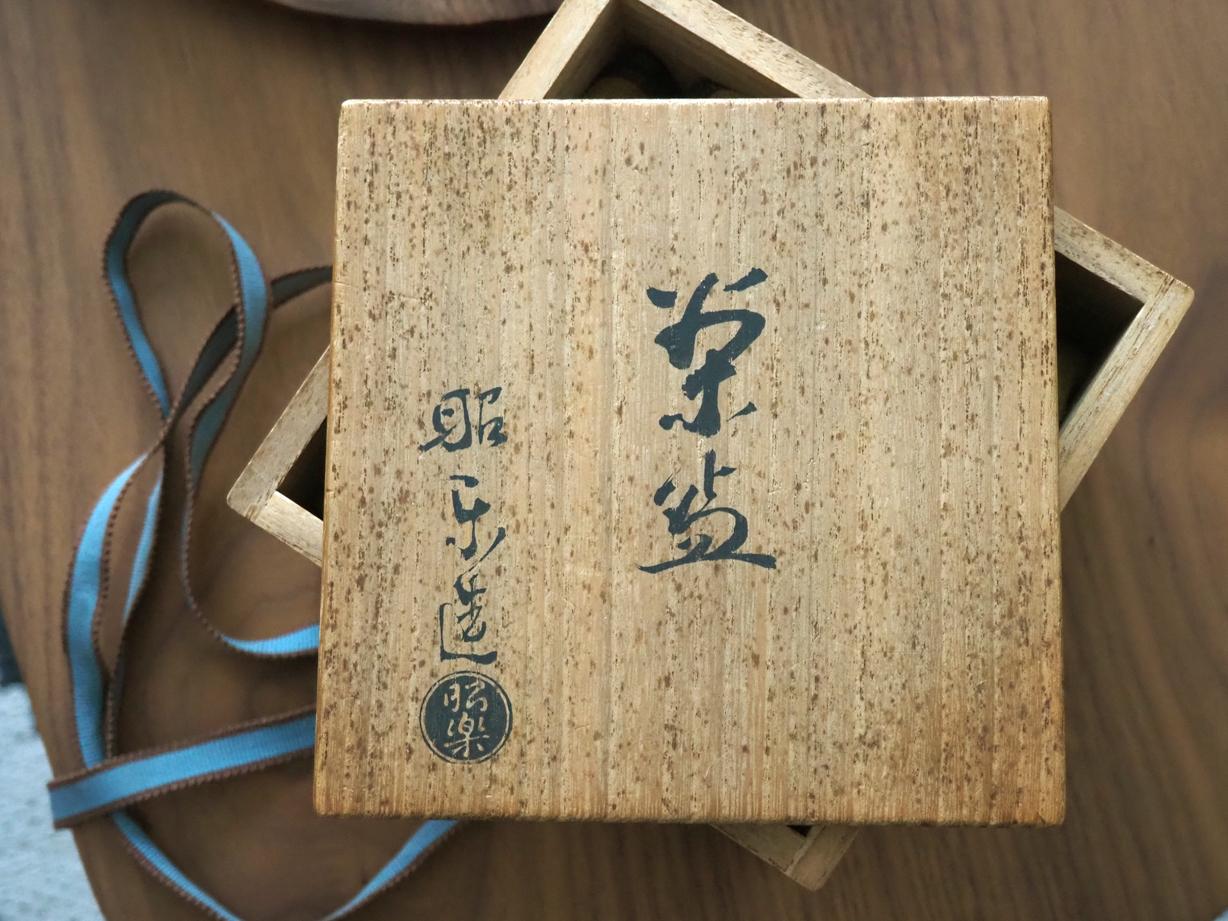 茶盌
昭楽造
昭楽